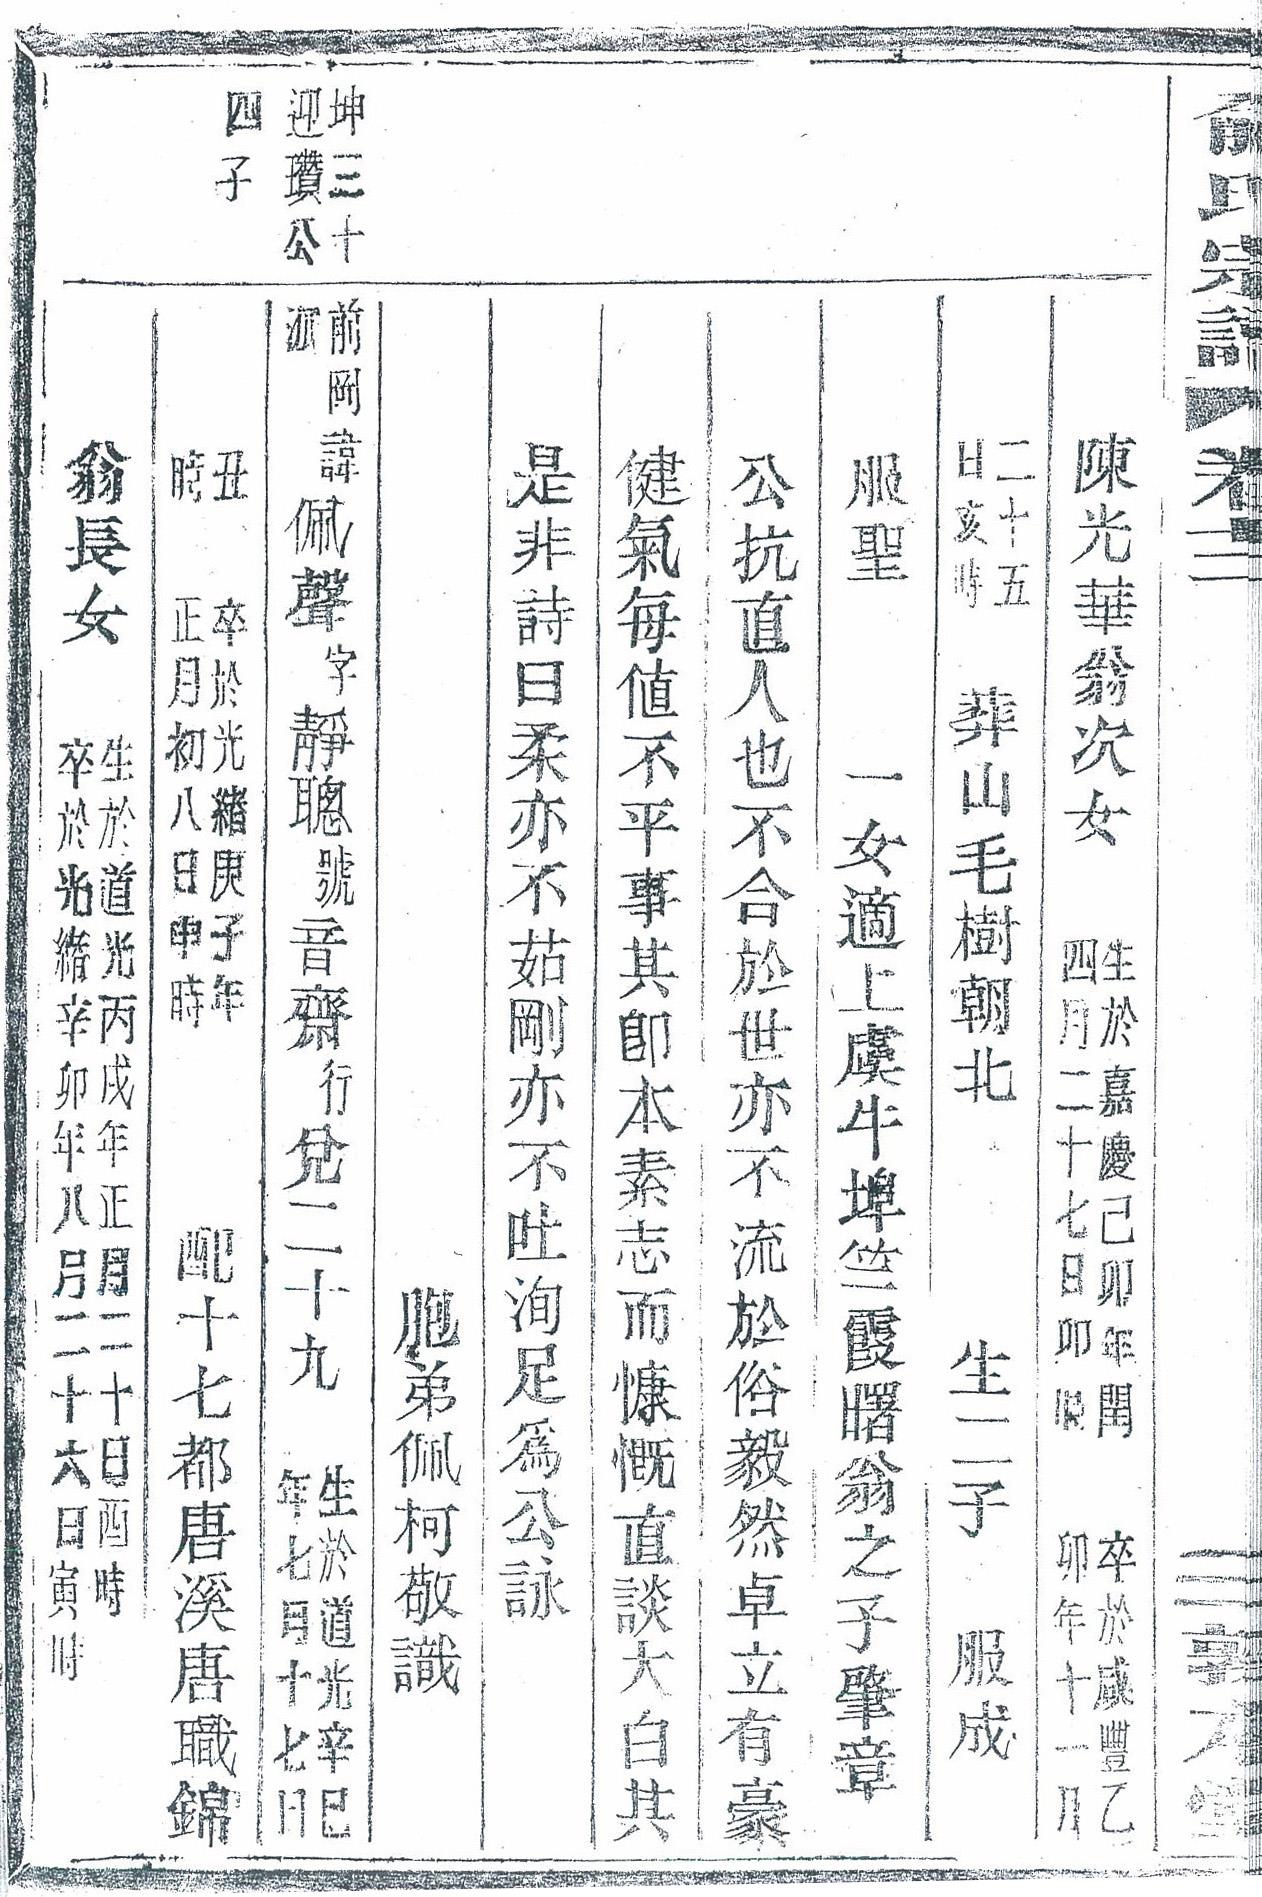 俞氏宗譜 卷二 三 敦本堂
陳光華翁次女 生於嘉慶己卯年閏四月二十七日卯時 卒於咸豐乙卯年十一月
二十五日亥時 葬山毛樹朝北 生二子 服成
服聖 一女適上虞牛埠竺霞曙翁之子肇章
公抗直人也不合於世亦不流於俗毅然卓立有豪
健氣每值不平事其卽本素志而慷慨直談大白其
是非詩曰柔亦不茹剛亦不吐洵足為公詠
胞弟佩柯敬識
坤三十
迎瓚公
四子
前岡派 諱佩聲字靜聰號音齋行兌二十九 生於道光辛巳年七月十七日
丑時 卒於光緒庚子年正月初八日申時 配十七都唐溪唐職錦
翁長女 生於道光丙戌年正月二十日酉時 卒於光緒辛卯年八月二十六日寅時